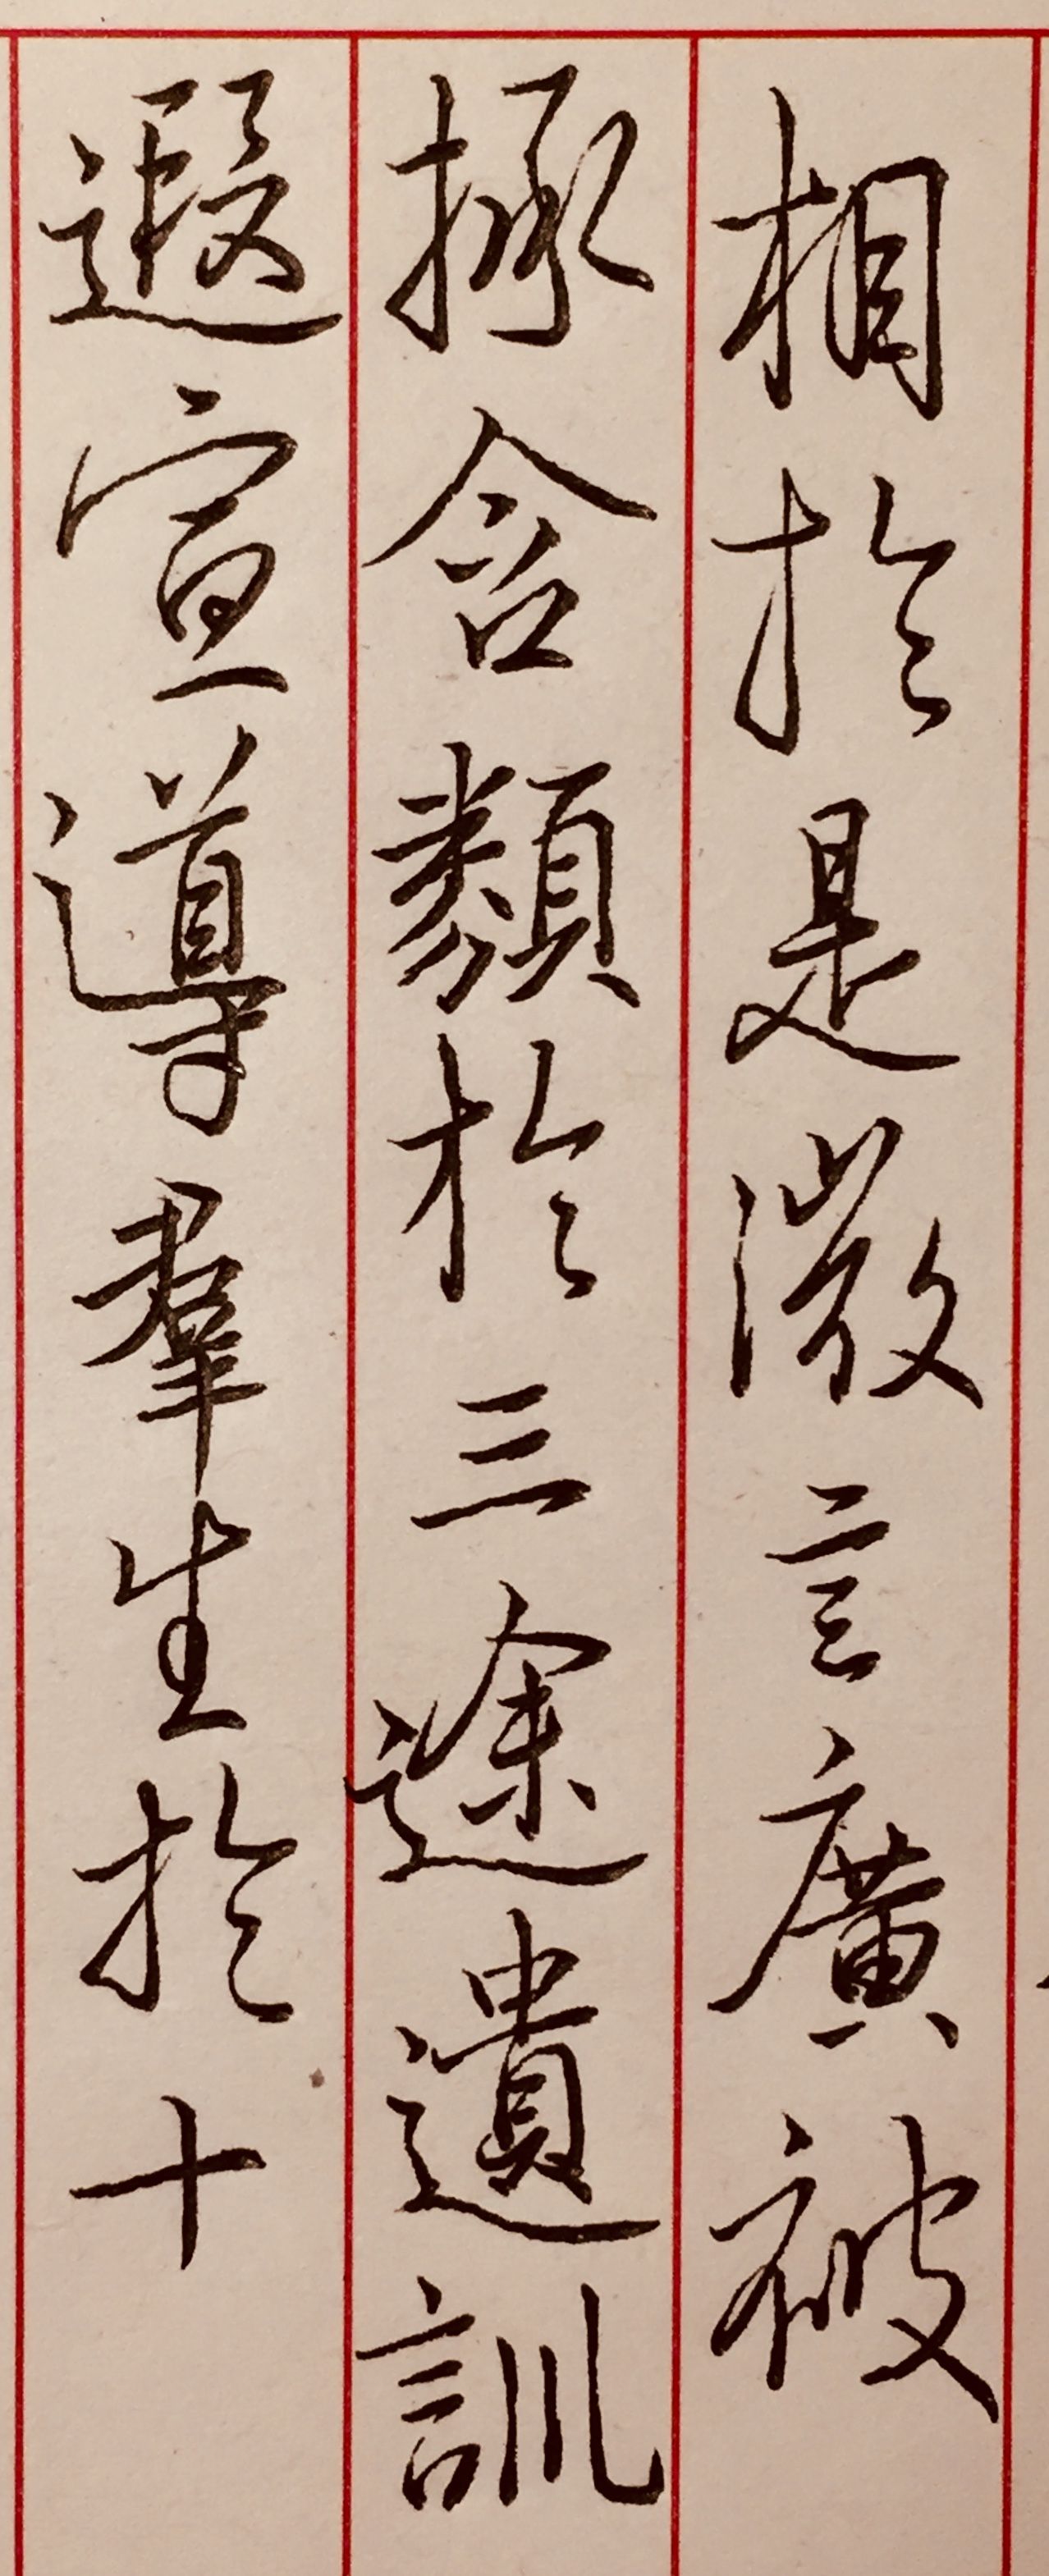 相於是微言廣被
拯含類於三途遺訓
遐宣導羣生於十